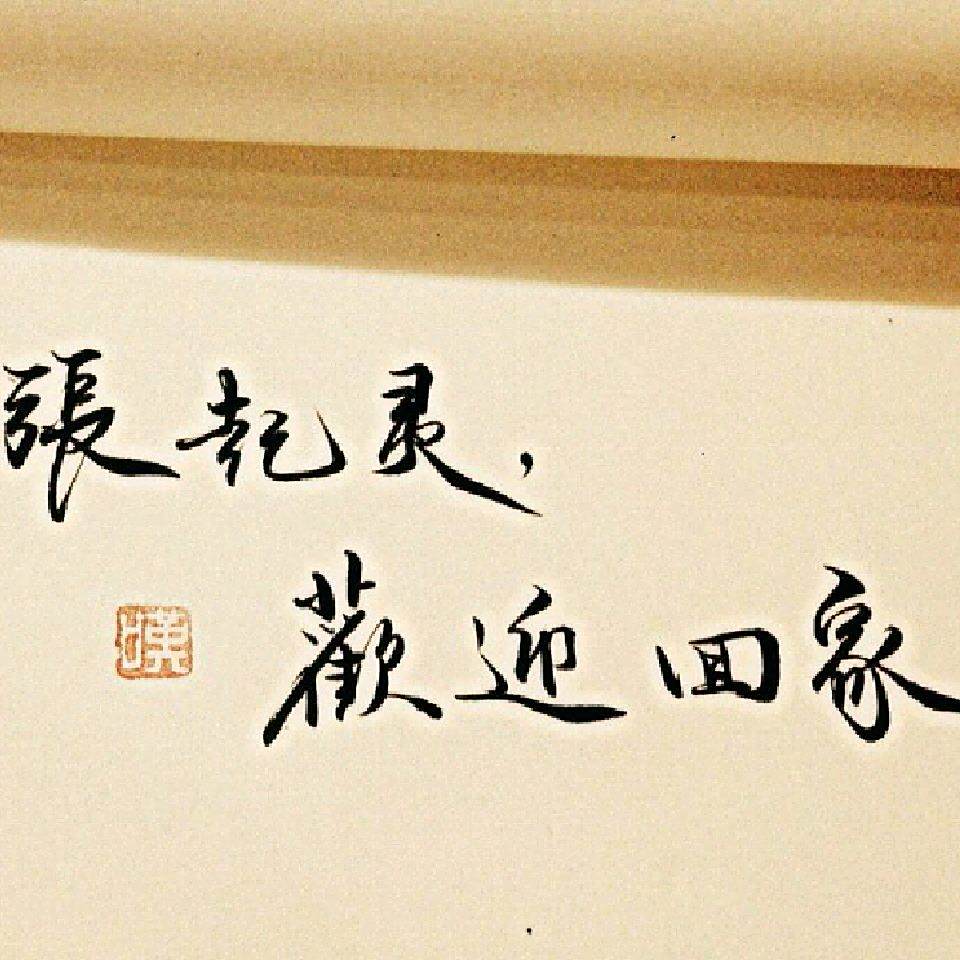 張起灵,
歡迎回家